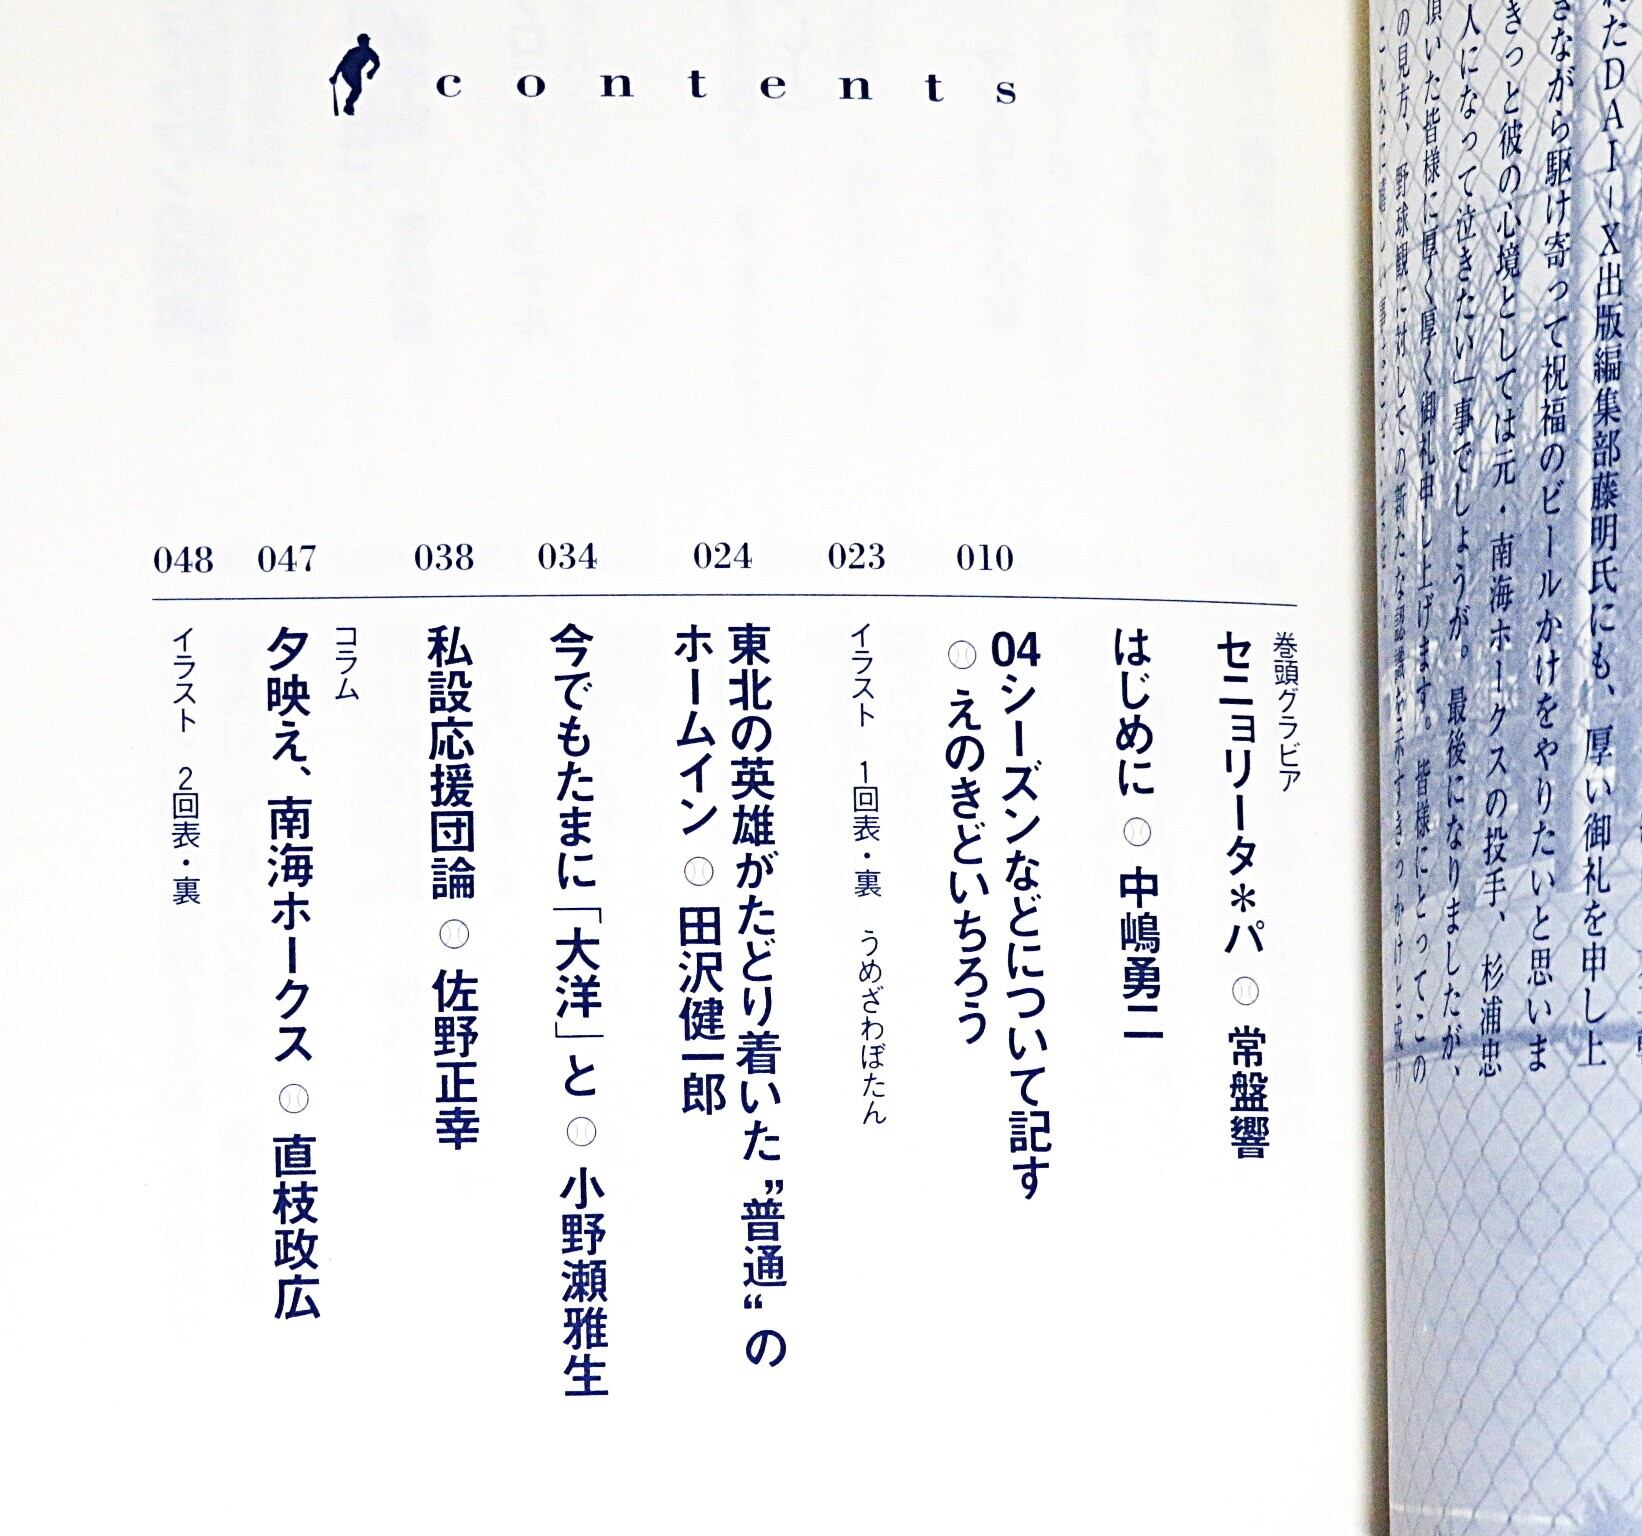 contents
巻頭グラビア
セニョリータ＊パ 常盤響
はじめに 中嶋勇二
010
04シーズンなどについて記す
えのきどいちろう
023
イラスト 1回表・裏 うめざわぼたん
024
東北の英雄がたどり着いた”普通“の
ホームイン 田沢健一郎
034
今でもたまに「大洋」と 小野瀬雅生
038
私設応援団論 佐野正幸
047
コラム
夕映え、南海ホークス 直枝政広
048
イラスト 2回表・裏
れたDAI-X出版編集部藤明氏にも、厚い御礼を申し上
きながら駆け寄って祝福のビールかけをやりたいと思いま
きっと彼の心境としては元・南海ホークスの投手、杉浦忠
人になって泣きたい」事でしょうが。最後になりましたが、
頂いた皆様に厚く厚く御礼申し上げます。皆様にとってこの
の見方、野球観に対しての新たな認識を示すきっかけと成り